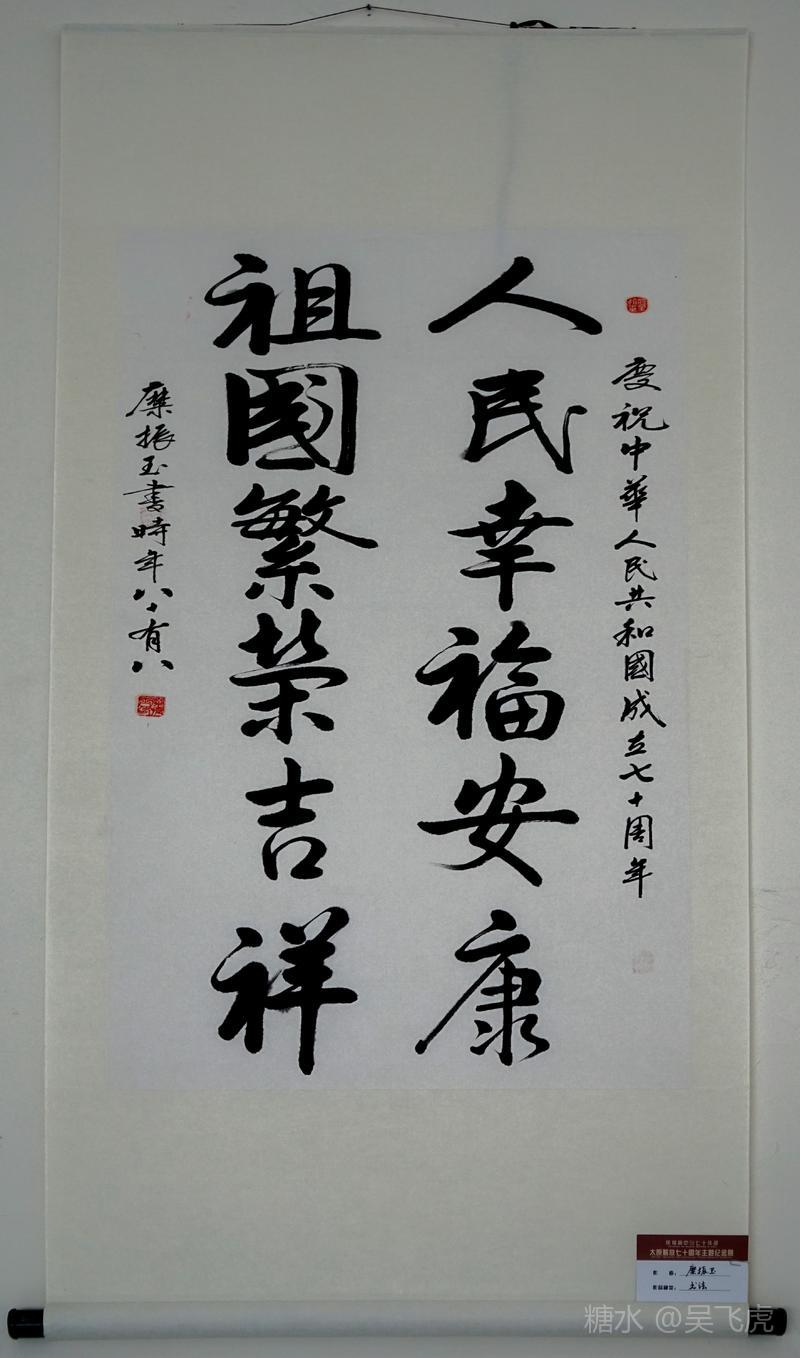 慶祝中華人民共和國成立七十周年
人民幸福安康
祖國繁榮吉祥
糜振玉書時年八十有八
太原解放七十周年主題纪念展
糜振玉
书法
糖水 @吴飞虎